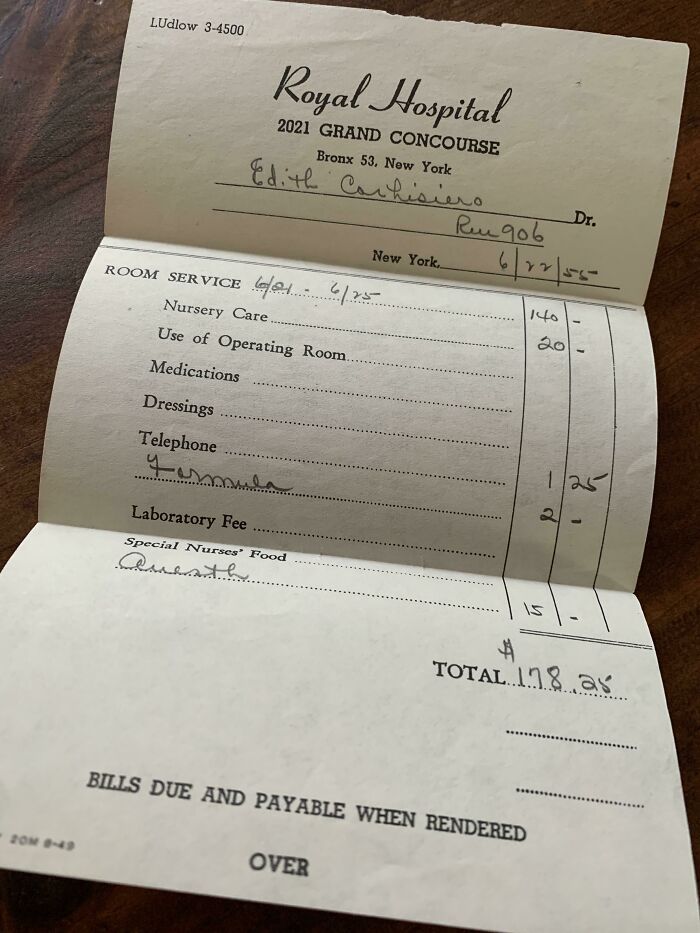 LUdlow 3-4500
Royal Hospital
2021 GRAND CONCOURSE
Bronx 53, New York
Edith
Dr.
Rm 906
New York, 6/22/55
ROOM SERVICE 6/21 - 6/25 140 -
Nursery Care 20 -
Use of Operating Room
Medications
Dressings
Telephone 1 25
Formula 2 -
Laboratory Fee
Special Nurses' Food
Anesth 15 -
TOTAL $178.25
BILLS DUE AND PAYABLE WHEN RENDERED
20M 8-49
OVER